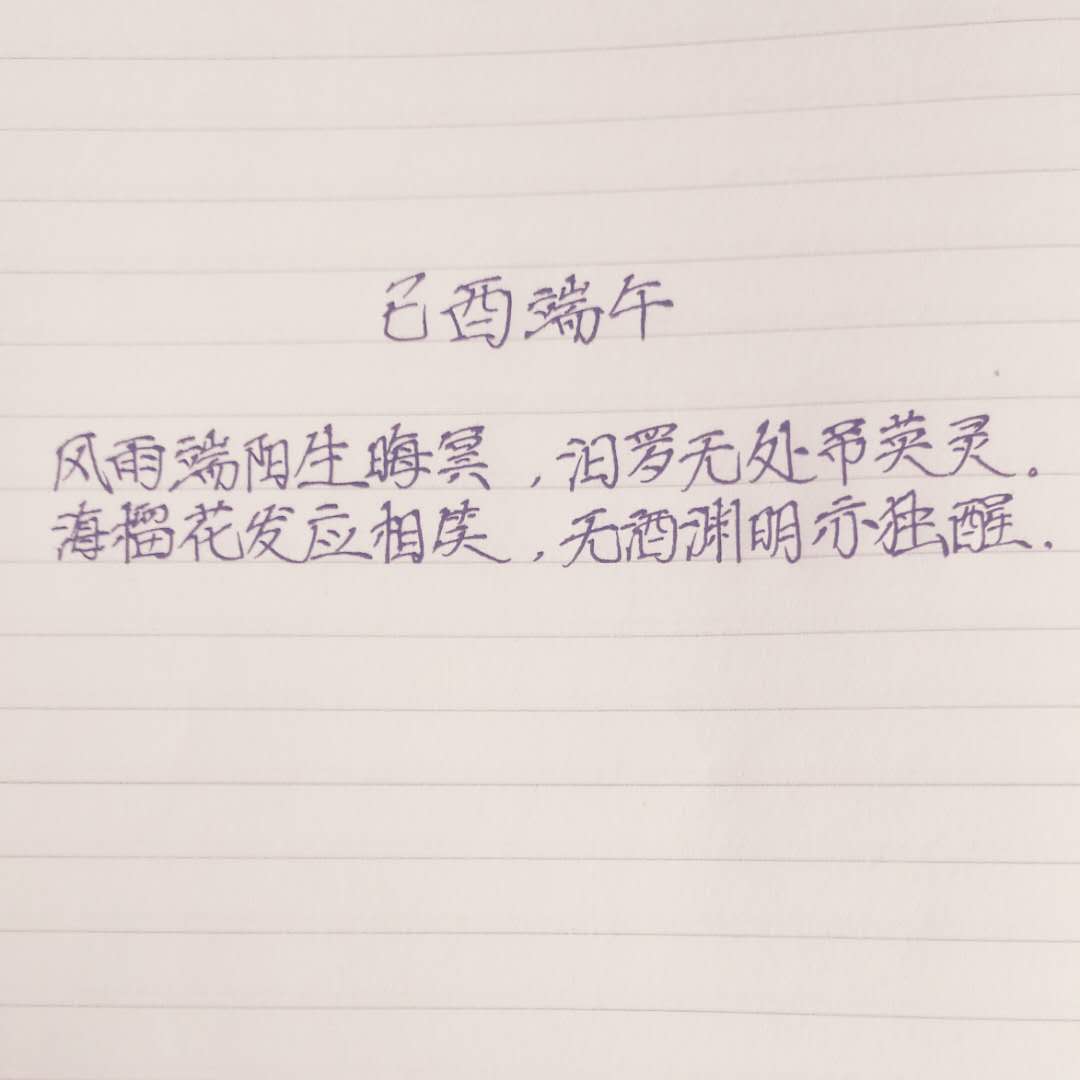 己酉端午
风雨端阳生晦冥，汨罗无处吊英灵。
海榴花发应相笑，无酒渊明亦独醒.